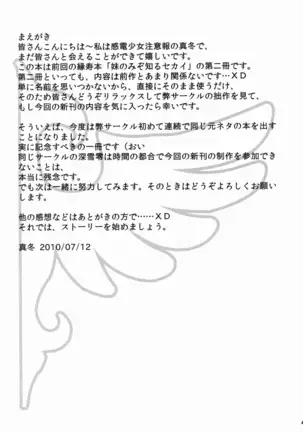 まえがき
皆さんこんにちは～私は感電少女注意報の真冬で、
まだ皆さんと会えることができて嬉しいです。
この本は前回の縁寿本「妹のみぞ知るセカイ」の第二冊です。
第二冊といっても、内容は前作とあまり関係ないです…ＸＤ
単に名前を思いつかないから、直接にそのまま使うだけ、
そのため皆さんどうぞリラックスして弊サークルの拙作を見て、
もし今回の新刊の内容を気に入ったら幸いです。

そういえば、今度は弊サークル初めて連続で同じ元ネタの本を出す
ことになりました。
実に記念すべきの一冊です（おい
同じサークルの深雪雫は時間の都合で今回の新刊の制作を参加でき
ないことは、
本当に残念です。
でも次は一緒に努力してみます。そのときはどうぞよろしくお願い
します。

他の感想などはあとがきの方で……ＸＤ
それでは、ストーリーを始めましょう。

真冬 2010/07/12